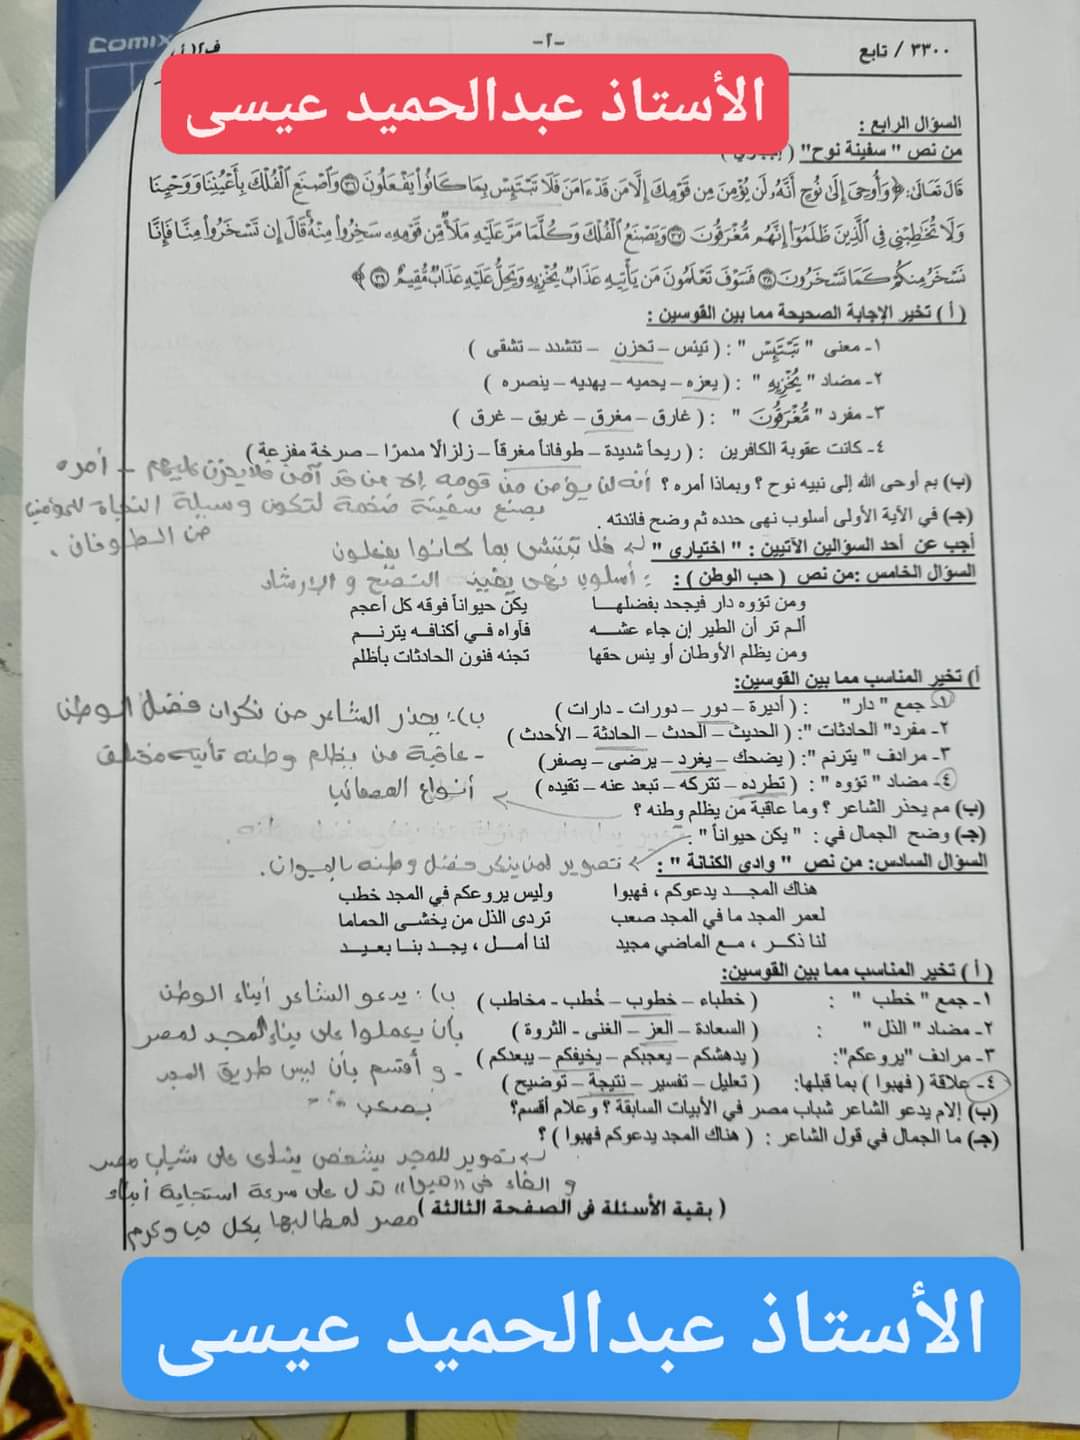 Comix
٣٣٠٠ / تابع
-٢-
الأستاذ عبدالحميد عيسى
السؤال الرابع :
من نص " سفينة نوح"
قَالَ تَعَالَى: ﴿ وَأُوحِيَ إِلَىٰ نُوحٍ أَنَّهُ لَن يُؤْمِنَ مِن قَوْمِكَ إِلَّا مَن قَدْ ءَامَنَ فَلَا تَبْتَئِسْ بِمَا كَانُوا يَفْعَلُونَ ﴿٣٦﴾ وَاصْنَعِ الْفُلْكَ بِأَعْيُنِنَا وَوَحْيِنَا
وَلَا تُخَاطِبْنِي فِي الَّذِينَ ظَلَمُوا إِنَّهُم مُّغْرَقُونَ ﴿٣٧﴾ وَيَصْنَعُ الْفُلْكَ وَكُلَّمَا مَرَّ عَلَيْهِ مَلَأٌ مِّن قَوْمِهِ سَخِرُوا مِنْهُ قَالَ إِن تَسْخَرُوا مِنَّا فَإِنَّا
نَسْخَرُ مِنكُمْ كَمَا تَسْخَرُونَ ﴿٣٨﴾ فَسَوْفَ تَعْلَمُونَ مَن يَأْتِيهِ عَذَابٌ يُخْزِيهِ وَيَحِلُّ عَلَيْهِ عَذَابٌ مُّقِيمٌ ﴿٣٩﴾ ﴾
( أ ) تخير الإجابة الصحيحة مما بين القوسين :
١- معنى " تَبْتَئِسْ " : ( تيئس – تحزن – تتشدد – تشقى )
٢- مضاد " يُخْزِيهِ " : ( يعزه – يحميه – يهديه – ينصره )
٣- مفرد " مُّغْرَقُونَ " : ( غارق – مغرق – غريق – غرق )
٤- كانت عقوبة الكافرين : ( ريحاً شديدة – طوفاناً مغرقاً – زلزالًا مدمرًا – صرخة مفزعة )
(ب) بم أوحى الله إلى نبيه نوح ؟ وبماذا أمره ؟ أنه لن يؤمن من قومه إلا من قد آمن فلا يحزن عليهم – أمره
بصنع سفينة ضخمة لتكون وسيلة النجاة للمؤمنين
(جـ) في الآية الأولى أسلوب نهى حدده ثم وضح فائدته . من الطوفان .
أجب عن أحد السؤالين الآتيين : " اختياري " فلا تبتئس بما كانوا يفعلون
السؤال الخامس :من نص ( حب الوطن ) : : أسلوب نهى يفيد النصح و الإرشاد
ومن تؤوه دار فيجحد بفضلهـا يكن حيواناً فوقه كل أعجم
ألـم تر أن الطير إن جاء عشـه فآواه فـي أكنافـه يترنـم
ومن يظلم الأوطان أو ينس حقها تجئه فنون الحادثات بأظلم
أ) تخير المناسب مما بين القوسين:
١- جمع " دار" : ( أديرة – دور – دورات - دارات )
ب): يحذر الشاعر من نكران فضل الوطن
٢- مفرد" الحادثات ": ( الحديث – الحدث – الحادثة – الأحدث )
- عاقبة من يظلم وطنه تأتيه مختلف
٣- مرادف " يترنم ": ( يضحك – يغرد – يرضى – يصفر)
٤- مضاد " تؤوه " : ( تطرده – تتركه – تبعد عنه – تقيده )
أنواع المصائب
(ب) مم يحذر الشاعر ؟ وما عاقبة من يظلم وطنه ؟
(جـ) وضح الجمال في : " يكن حيواناً" :
السؤال السادس: من نص " وادى الكنانة " : تصوير لمن ينكر فضل وطنه بالحيوان.
هناك المجـد يدعوكم ، فهبوا وليس يروعكم في المجد خطب
لعمر المجد ما في المجد صعب تردى الذل من يخشـى الحماما
لنا ذكـر ، مـع الماضي مجيد لنا أمـل ، يجـد بنـا بعـيد
( أ ) تخير المناسب مما بين القوسين:
١- جمع " خطب " : ( خطباء – خطوب – خُطب - مخاطب )
ب): يدعو الشاعر أبناء الوطن
٢- مضاد " الذل " : ( السعادة – العز – الغنى - الثروة )
بأن يعملوا على بناء المجد لمصر
٣- مرادف "يروعكم": ( يدهشكم – يعجبكم – يخيفكم – يبعدكم )
- و أقسم بأن ليس طريق المجد
٤- علاقة ( فهبوا ) بما قبلها: ( تعليل – تفسير – نتيجة – توضيح )
بصعب
(ب) إلام يدعو الشاعر شباب مصر في الأبيات السابقة ؟ وعلام أقسم؟
(جـ) ما الجمال في قول الشاعر : ( هناك المجد يدعوكم فهبوا ) ؟
تصوير للمجد بشخص ينادى على شباب مصر
و الفاء فى "هبوا" تدل على سرعة استجابة أبناء
( بقية الأسئلة فى الصفحة الثالثة )
مصر لمطالبها بكل حب وكرم
الأستاذ عبدالحميد عيسى